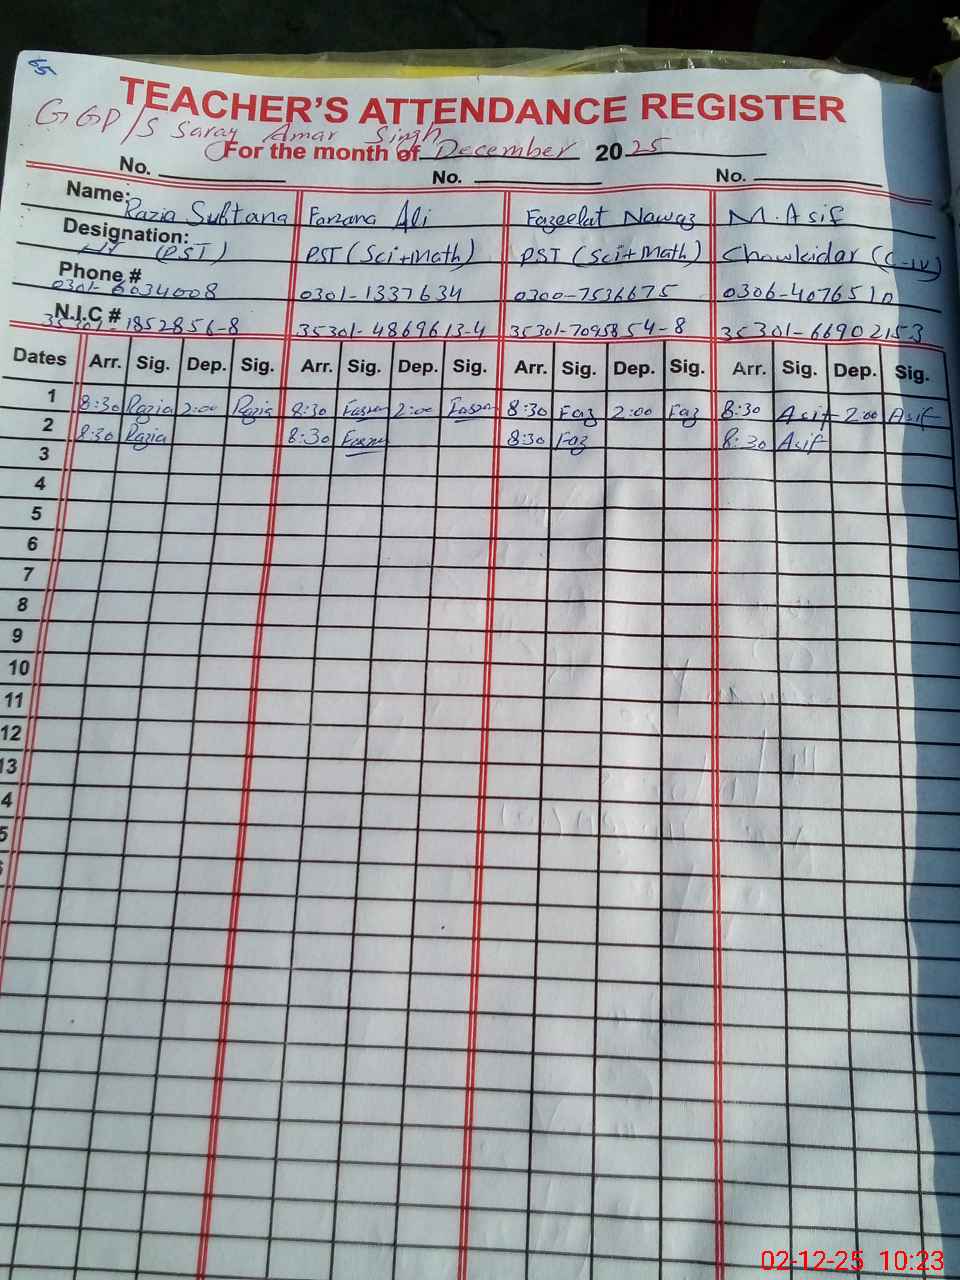 TEACHER'S ATTENDANCE REGISTER
GGP/S Saray Amar Singh
For the month of December 2025
No. No. No.
Name: Razia Sultana Farzana Ali Fazeelat Nawaz M. Asif
Designation: (PST) PST (Sci+Math) PST (Sci+Math) Chowkidar (C-IV)
Phone # 0301-6034008 0301-1337634 0300-7536675 0306-4076510
N.I.C # 35301-1852856-8 35301-4869613-4 35301-7095854-8 35301-66902153
Dates Arr. Sig. Dep. Sig. Arr. Sig. Dep. Sig. Arr. Sig. Dep. Sig. Arr. Sig. Dep. Sig.
1 8:30 Razia 2:00 Razia 8:30 2:00 8:30 Faz 2:00 Faz 8:30 Asif 2:00 Asif
2 8:30 Razia 8:30 8:30 Faz 8:30 Asif
3
4
5
6
7
8
9
10
11
12
13
4
5
02-12-25 10:23